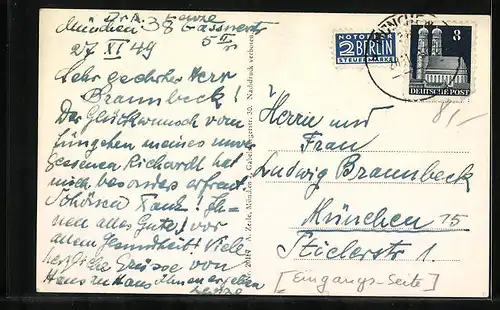 München 38
27 XI 49
Sehr geehrter Herr
Braunbeck!
Der Glückwunsch vom
Jüngsten meines unver-
gessenen Richardt hat
mich besonders erfreut
Schönen Dank! Ih-
nen alles Gute! vor
allem Gesundheit! Viele
herzliche Grüsse von
Haus zu Haus Ihnen ergeben
NOTOPFER
2 BERLIN
STEUERMARKE
8
DEUTSCHE POST
Herrn und
Frau
Ludwig Braunbeck
München 15
Stielerstr 1.
[Eingangs-Seite]
Nachdruck verboten